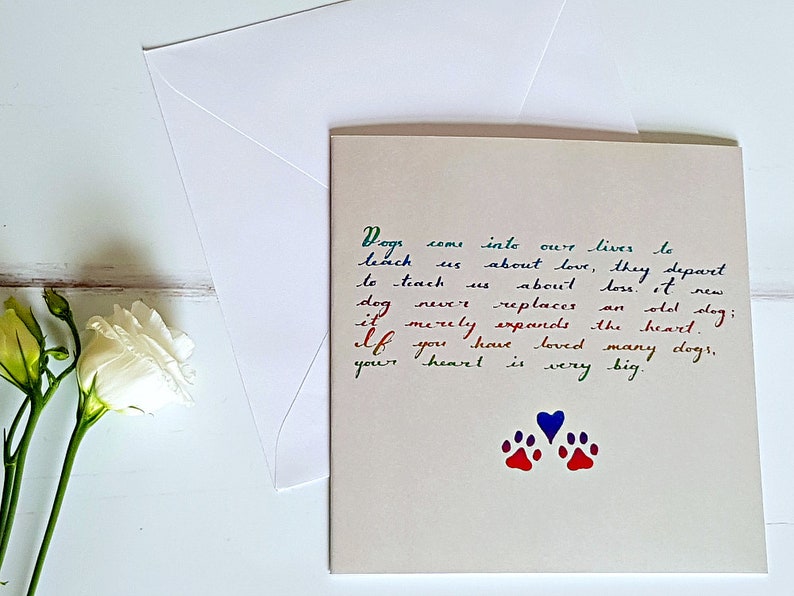 Dogs come into our lives to
teach us about love, they depart
to teach us about loss. A new
dog never replaces an old dog;
it merely expands the heart.
If you have loved many dogs,
your heart is very big.